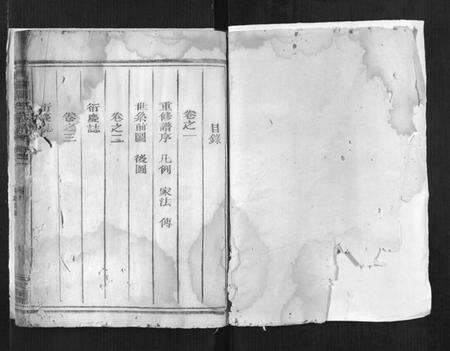 目錄
卷之一
重修譜序 凡例 家法 傳
世系前圖 後圖
卷之二
衍慶誌
卷之三
衍慶誌